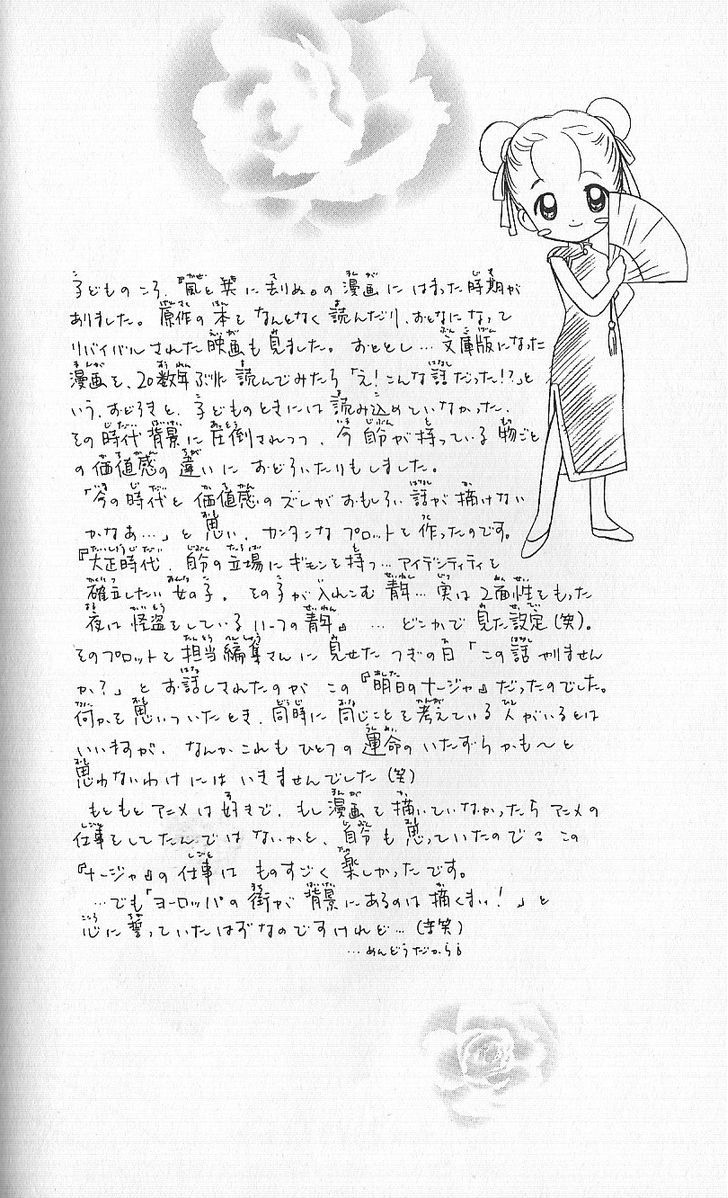 子どものころ、『風と共に去りぬ。の漫画にはまった時期が
ありました。原作の本をなんとなく読んだり、おとなになって
リバイバルされた映画も見ました。おととし…文庫版になった
漫画を、20数年ぶりに読んでみたら「え!こんな話だった!?」と
いう、おどろきと、子どものときには読み込めていなかった、
その時代背景に圧倒されつつ、今自分が持っている物ごと
の価値感の違いにおどろいたりもしました。
「今の時代と価値感のズレがおもしろい話が描けない
かなあ…」と思い、カンタンなプロットを作ったのです。
『大正時代、自分の立場にギモンを持つ…アイデンティティを
確立したい女の子。その子が入れこむ青年…実は2面性をもった
夜は怪盗をしているいっつの青年』…どこかで見た設定(笑)。
そのプロットを担当編集さんに見せたつぎの日「この話やりません
か?」とお話しされたのがこの『明日のナージャ』だったのでした。
何かを思いついたとき、同時に同じことを考えている人がいるとは
いいますが、なんかこれもひとつの運命のいたずらかも〜と
思わないわけにはいきませんでした(笑)
もともとアニメは好きで、もし漫画を描いていなかったらアニメの
仕事をしてたんではないかと、自分も思っていたので、この
『ナージャ』の仕事はものすごく楽しかったです。
…でも「ヨーロッパの街が背景にあるのは描くまい!」と
心に誓っていたはずなのですけれど…(苦笑)
…めんどうだから。